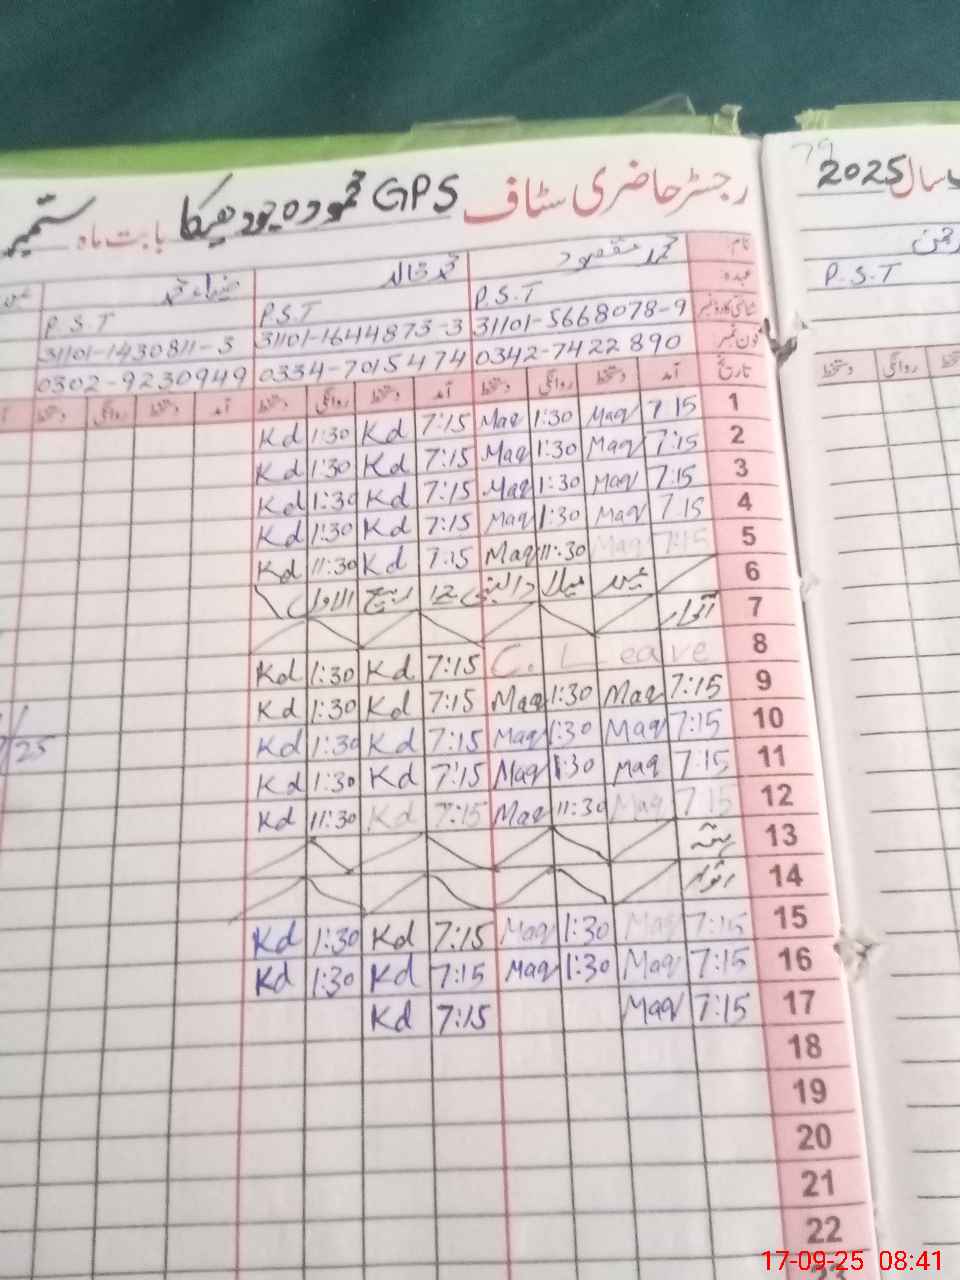 79
رجسٹر حاضری سٹاف GPS محمودہ جودھیکا بابت ماہ ستمبر
سال 2025
نام محمد مقصود محمد خالد ضیاء محمد
عہدہ P.S.T P.S.T P.S.T P.S.T
شناختی کارڈ نمبر 31101-5668078-9 31101-1644873-3 31101-1430811-3
فون نمبر 0342-7422890 0334-7015474 0302-9230949
تاریخ آمد دستخط روانگی دستخط آمد دستخط روانگی دستخط آمد دستخط روانگی دستخط
1 7:15 Maq 1:30 Maq 7:15 Kd 1:30 Kd
2 7:15 Maq 1:30 Maq 7:15 Kd 1:30 Kd
3 7:15 Maq 1:30 Maq 7:15 Kd 1:30 Kd
4 7:15 Maq 1:30 Maq 7:15 Kd 1:30 Kd
5 7:15 Maq 11:30 Maq 7:15 Kd 11:30 Kd
6 عید میلاد النبی 12 ربیع الاول
7 اتوار
8 C. Leave 7:15 Kd 1:30 Kd
9 7:15 Maq 1:30 Maq 7:15 Kd 1:30 Kd
10 7:15 Maq 1:30 Maq 7:15 Kd 1:30 Kd
11 7:15 Maq 1:30 Maq 7:15 Kd 1:30 Kd
12 7:15 Maq 11:30 Maq 7:15 Kd 11:30 Kd
13 ہفتہ
14 اتوار
15 7:15 Maq 1:30 Maq 7:15 Kd 1:30 Kd
16 7:15 Maq 1:30 Maq 7:15 Kd 1:30 Kd
17 7:15 Maq 7:15 Kd
18
19
20
21
22
23
17-09-25 08:41